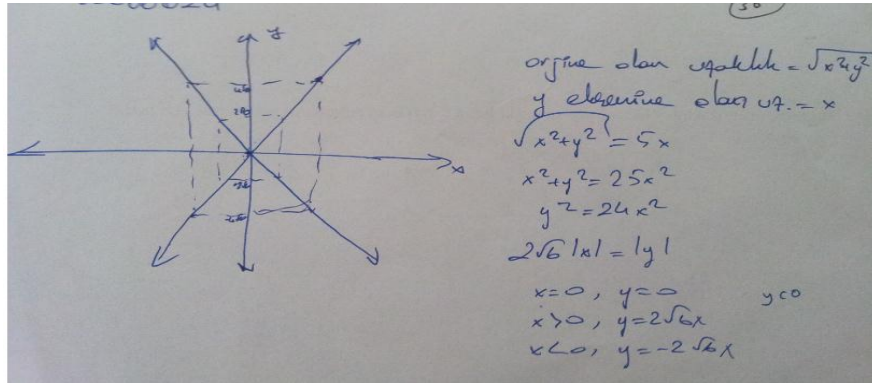 50
y
4√6
2√6
x
orjine olan uzaklık = √x²+y²
y eksenine olan uz. = x
√x²+y² = 5x
x²+y² = 25x²
y² = 24x²
2√6 |x| = |y|
x=0, y=0 y<0
x>0, y=2√6x
x<0, y=-2√6x